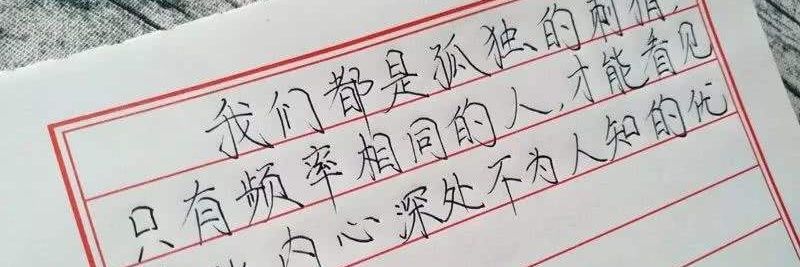 我们都是孤独的刺猬，
只有频率相同的人，才能看见
内心深处不为人知的优